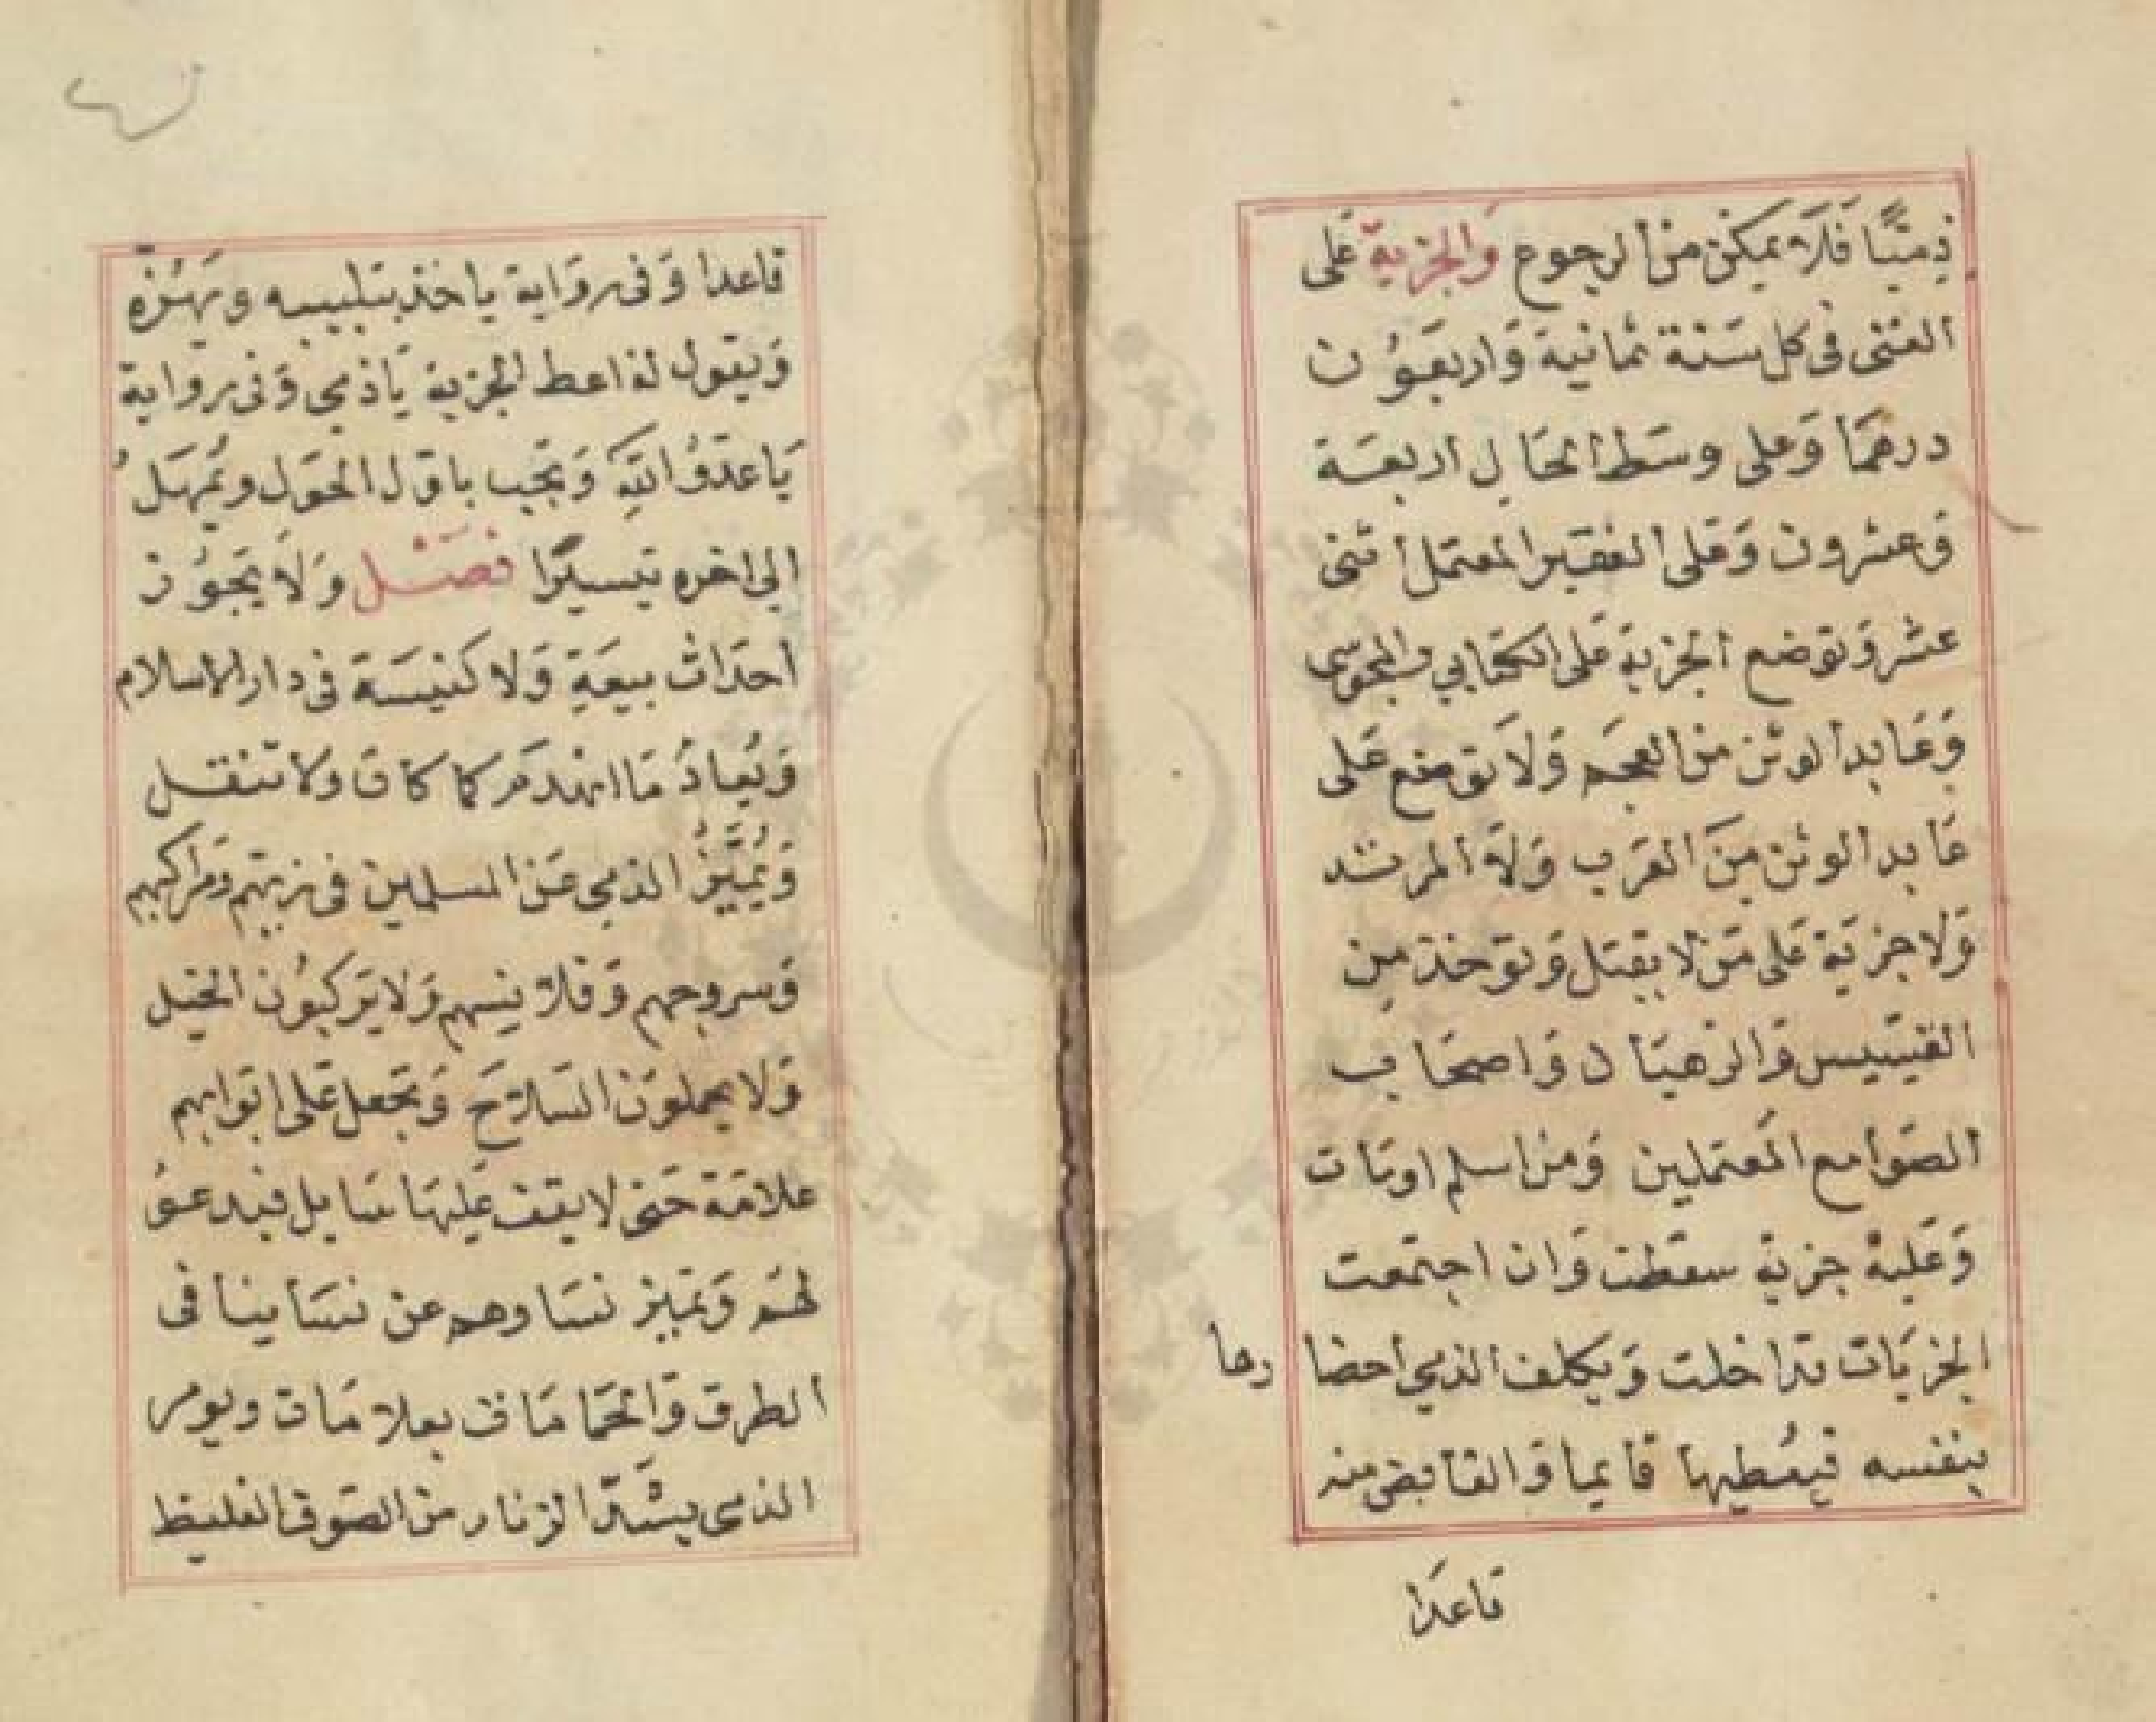 ذِميًّا فَلَا يمكن من الرجوع وَالجزية عَلى
الغنى فى كل سَنة ثمانية وَاربعَوُن
درهمَا وَعلى وسَط الحَال اربعَة
وَعشرون وَعَلى الفقير المعتمل اثنى
عشر وَتوضع الجزية عَلى الكتَابي والمجَوسى
وَعَابد الوثن من العجَم وَلَا توضع عَلى
عَابد الوثن مِنَ العَرَب وَلَا المرتد
وَلا جزيَة عَلى مَن لا يقتل وَتوخذ مِن
القسّيس وَالرهبَان وَاصحَاب
الصَوامع المُعتملين وَمن اسلم اومَات
وَعَليه جزية سقطت وَان اجتمعت
الجزيَات تداخلت وَيكلف الذمي احضا رها
بنفسه فيعُطيها قايما وَالقابض منه
قاعدَا
قاعدا وَفى روَاية ياخذ بتلبيبه ويَهُزه
وَيقول له اعط الجزية يَاذمي وَفى رواية
يَاعَدوُّ اللهِ وَتجب باوّل الحَول ويُمهَلُ
الى اخره تيسيرًا فصَل وَلَا يَجوُز
احدَاث بيعَةٍ وَلا كنيسَة فى دار الاسلام
وَيُعادُ مَا انهدَم كما كان وَلا تنقل
وَيُمَيَّزُ الذمي عَن المسلمين فى زيّهم وَمَراكبهم
وَسروجهم وَقلانسهم وَلا يَركبُون الخيل
وَلا يحملوَن السَلاحَ وَتجعل عَلى ابوَابهم
علامَة حَتى لا يقف عَليهَا سَايل فيدعوُ
لهُم وَتميز نسَاوهم عن نسَاينا فى
الطرق وَالحَمامَات بعلامَات ويومر
الذمى بشَدّ الزنار من الصَوف الغليظ